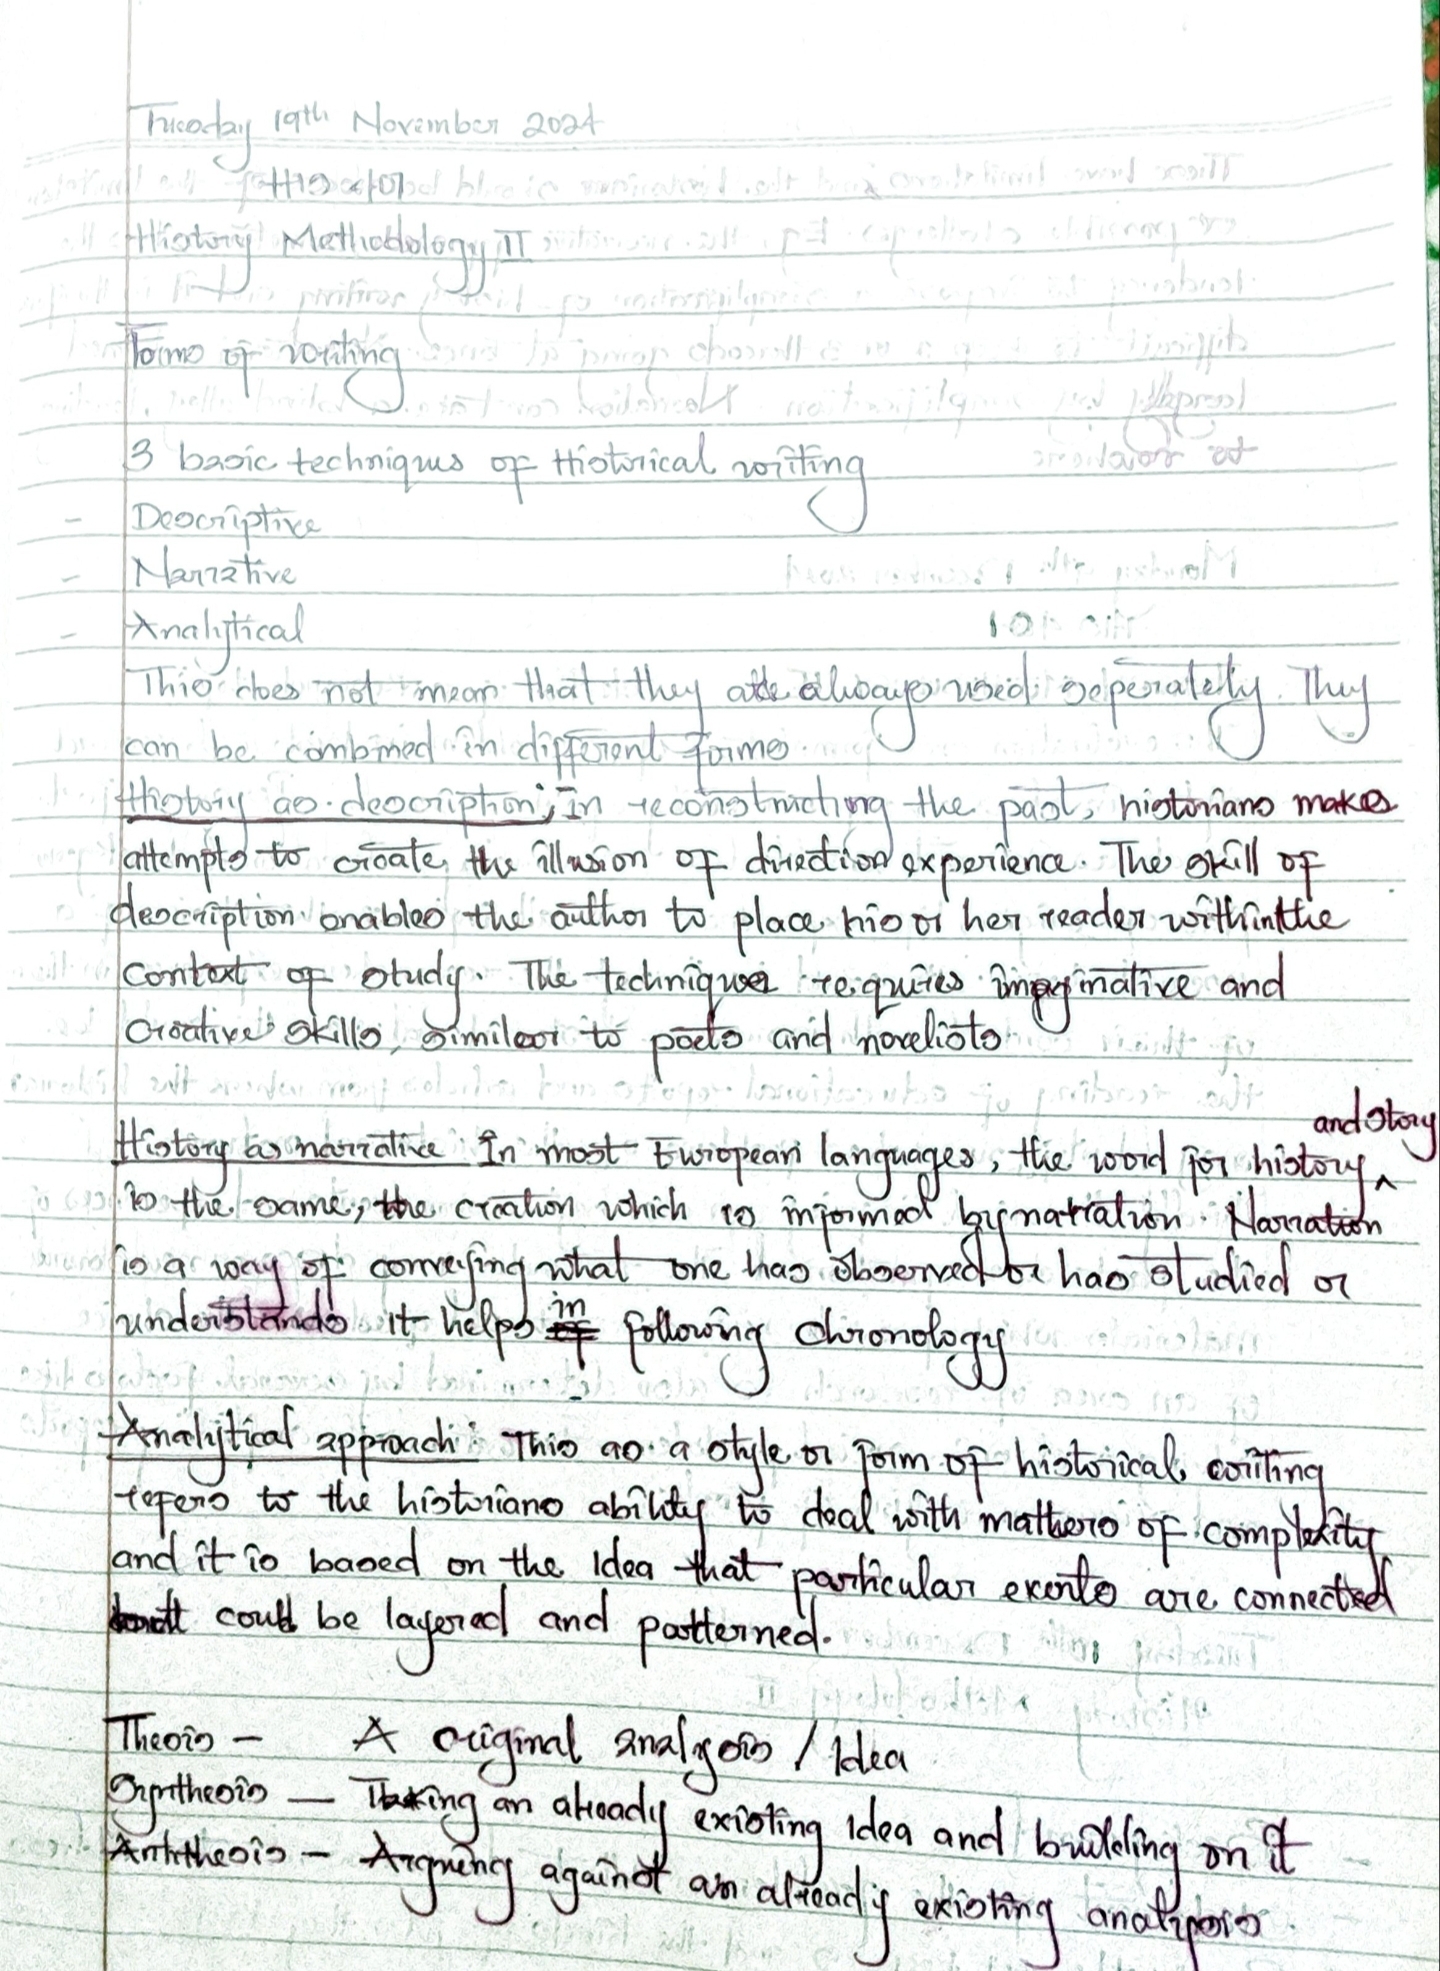 Tuesday 19th November 2024
HIS 401
History Methodology II
Forms of writing
3 basic techniques of Historical writing
- Descriptive
- Narrative
- Analytical
This does not mean that they are always used seperately. They
can be combined in different forms
History as description; In reconstructing the past, historians makes
attempts to create the illusion of direction experience. The skill of
description enables the author to place his or her reader within the
context of study. The techniques requires imaginative and
creative skills, similar to poets and novelists
History as narrative In most European languages, the word for history and story
is the same, the creation which is informed by narration. Narration
is a way of conveying what one has observed or has studied or
understands it helps in following chronology
Analytical approach: This as a style or form of historical writing
refers to the historians ability to deal with mathers of complexity
and it is based on the Idea that particular events are connected
could be layered and patterned.
Thesis - A original analysis / Idea
Synthesis - Taking an already existing Idea and building on it
Antithesis - Argueing against an already existing analysis